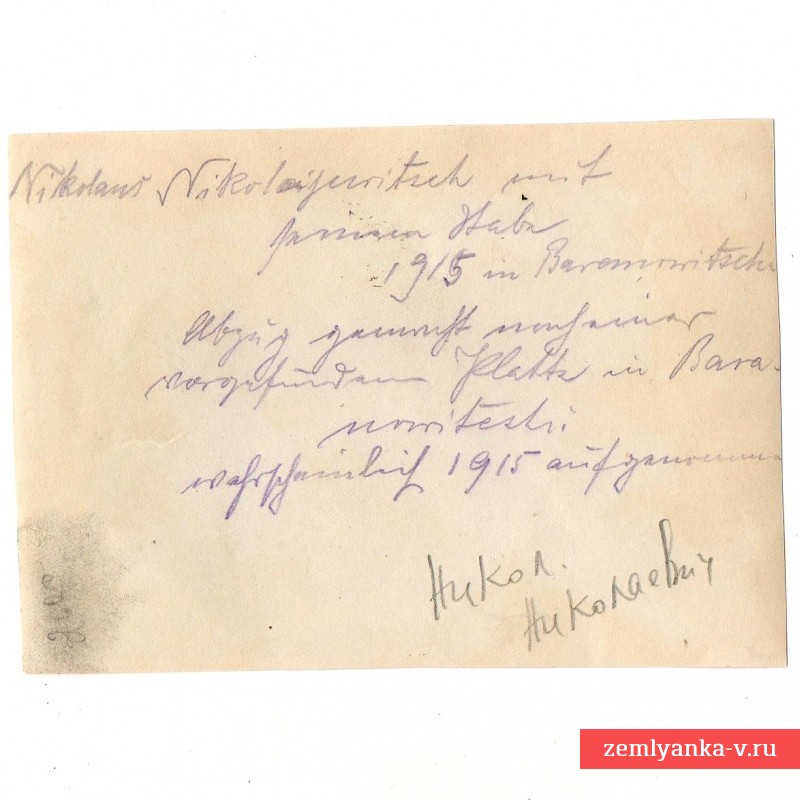 Nikolaus Nikolaijewitsch mit
seinem Stabe
1915 in Baranowitschi
Abzug gemacht nach einer
vorgefundenen Platte in Bara-
nowitschi
wahrscheinlich 1915 aufgenommen
Никол.
Николаевич
zemlyanka-v.ru